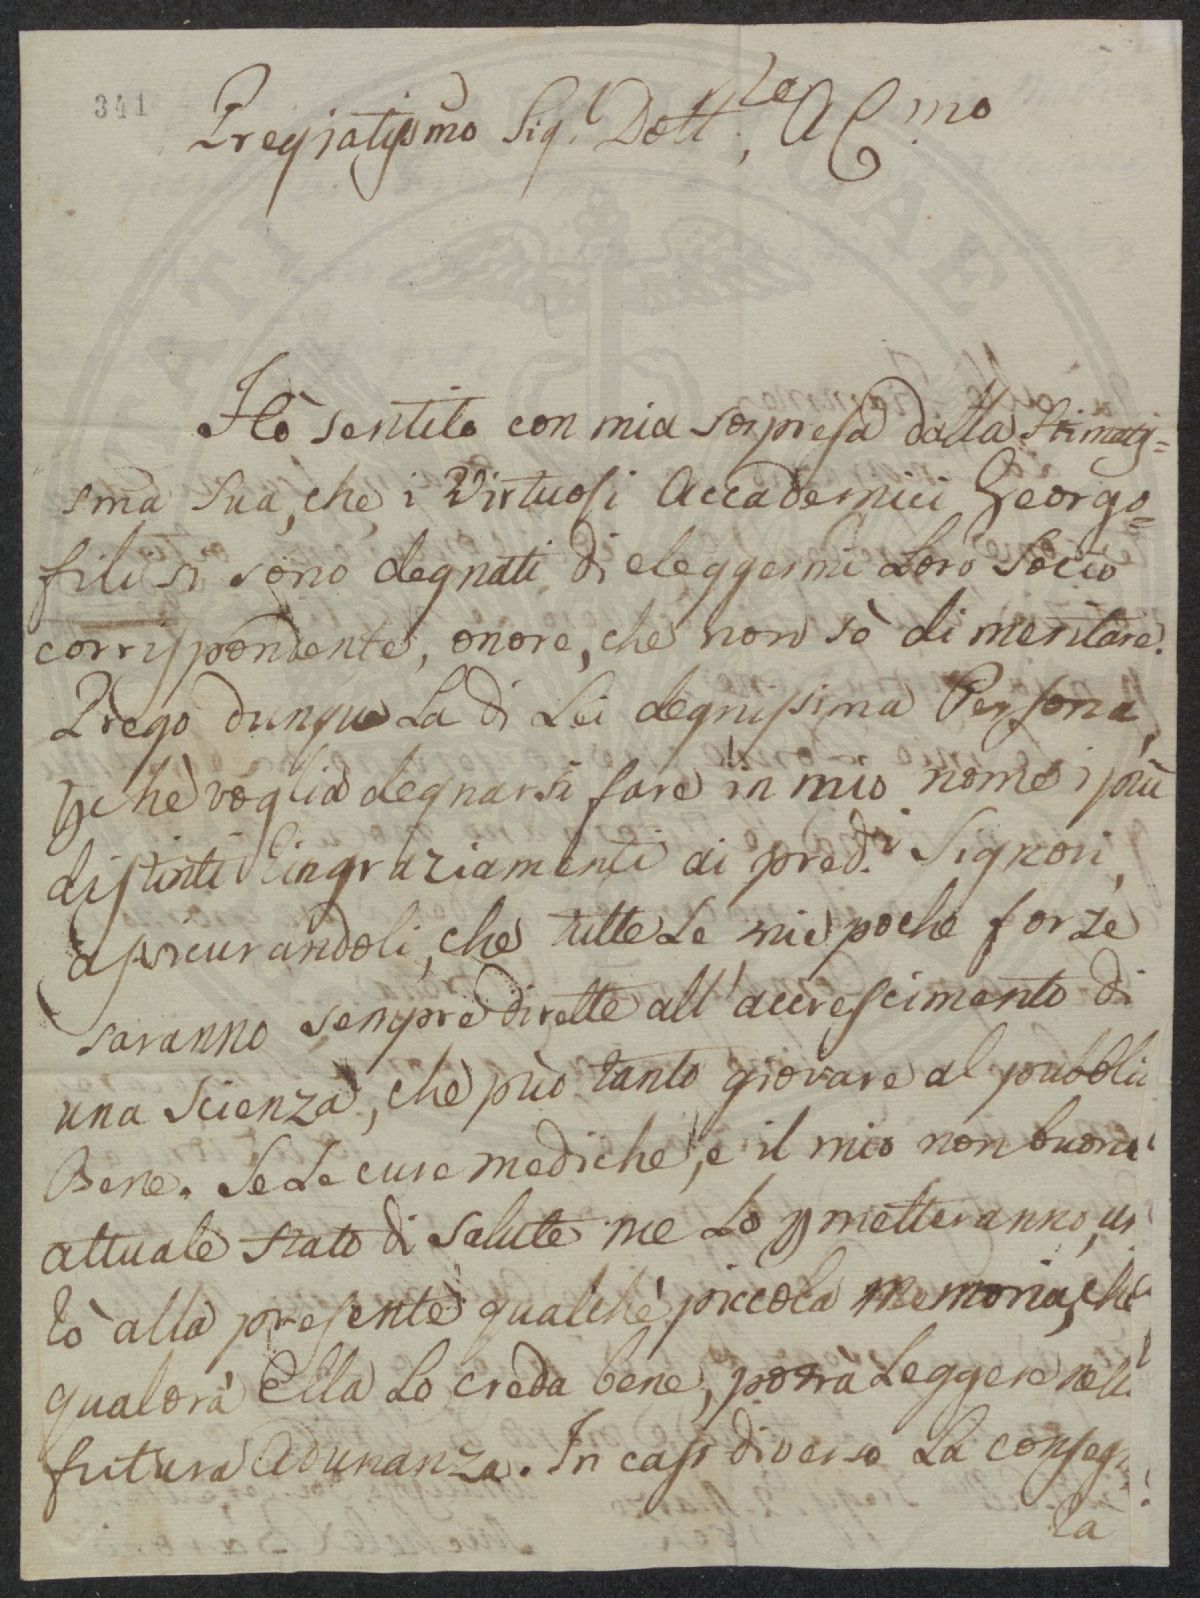 341
Pregiatissmo Sig.r Dott.re A C.mo
Hò sentito con mia sorpresa dalla Stimatis=
sma sua, che i Virtuosi Accademici Georgo=
fili si sono degnati di eleggermi Loro Socio
corrispondente, onore, che non sò di meritare.
Prego dunque La di Lei degnissima Persona,
pchè voglia degnarsi fare in mio nome i più
distinti ringraziamenti ai pred.i Signori,
assicurandoli, che tutte Le mie poche forze
saranno sempre dirette all' accrescimento di
una Scienza, che può tanto giovare al pubbli
Bene. Se Le cure mediche, e il mio non buono
attuale stato di salute me Lo pmetteranno, u
rò alla presente qualche piccola memoria, che
qualora Ella Lo creda bene, potrà Leggere nell
futura Adunanza. In caso diverso La conseg
rà